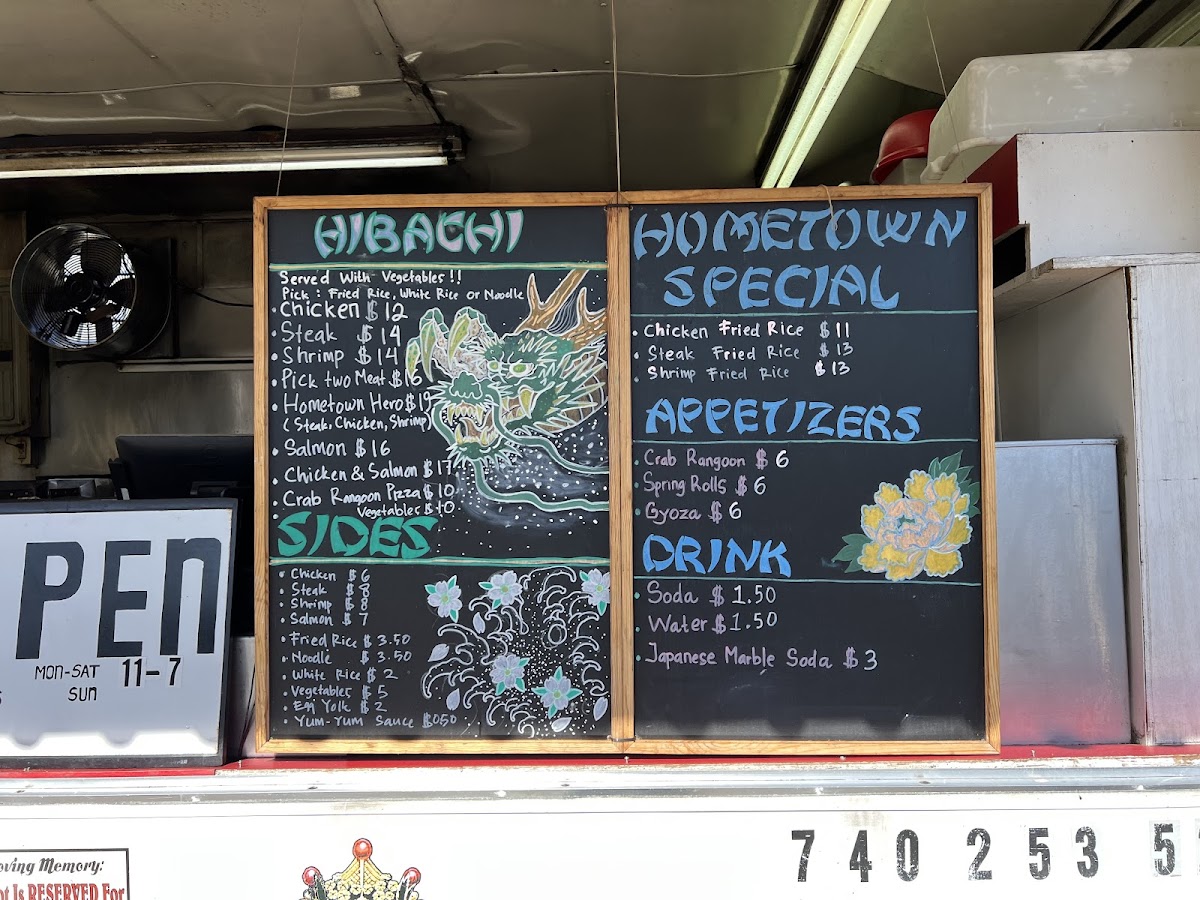 HIBACHI
Served With Vegetables !!
Pick : Fried Rice, White Rice or Noodle
• Chicken $ 12
• Steak $ 14
• Shrimp $ 14
• Pick two Meat $16
• Hometown Hero $19
( Steak, Chicken, Shrimp)
• Salmon $ 16
• Chicken & Salmon $ 17
• Crab Rangoon Pizza $ 10
Vegetables $ 10
SIDES
• Chicken $ 6
• Steak $ 8
• Shrimp $ 8
• Salmon $ 7
• Fried Rice $ 3.50
• Noodle $ 3.50
• White Rice $ 2
• Vegetables $ 5
• Egg Yolk $ 2
• Yum-Yum Sauce $050
HOMETOWN
SPECIAL
• Chicken Fried Rice $ 11
• Steak Fried Rice $ 13
• Shrimp Fried Rice $ 13
APPETIZERS
• Crab Rangoon $ 6
• Spring Rolls $ 6
• Gyoza $ 6
DRINK
• Soda $ 1.50
• Water $ 1.50
• Japanese Marble Soda $ 3
PEN
MON-SAT 11-7
SUN
oving Memory:
ot Is RESERVED For
740 253 5